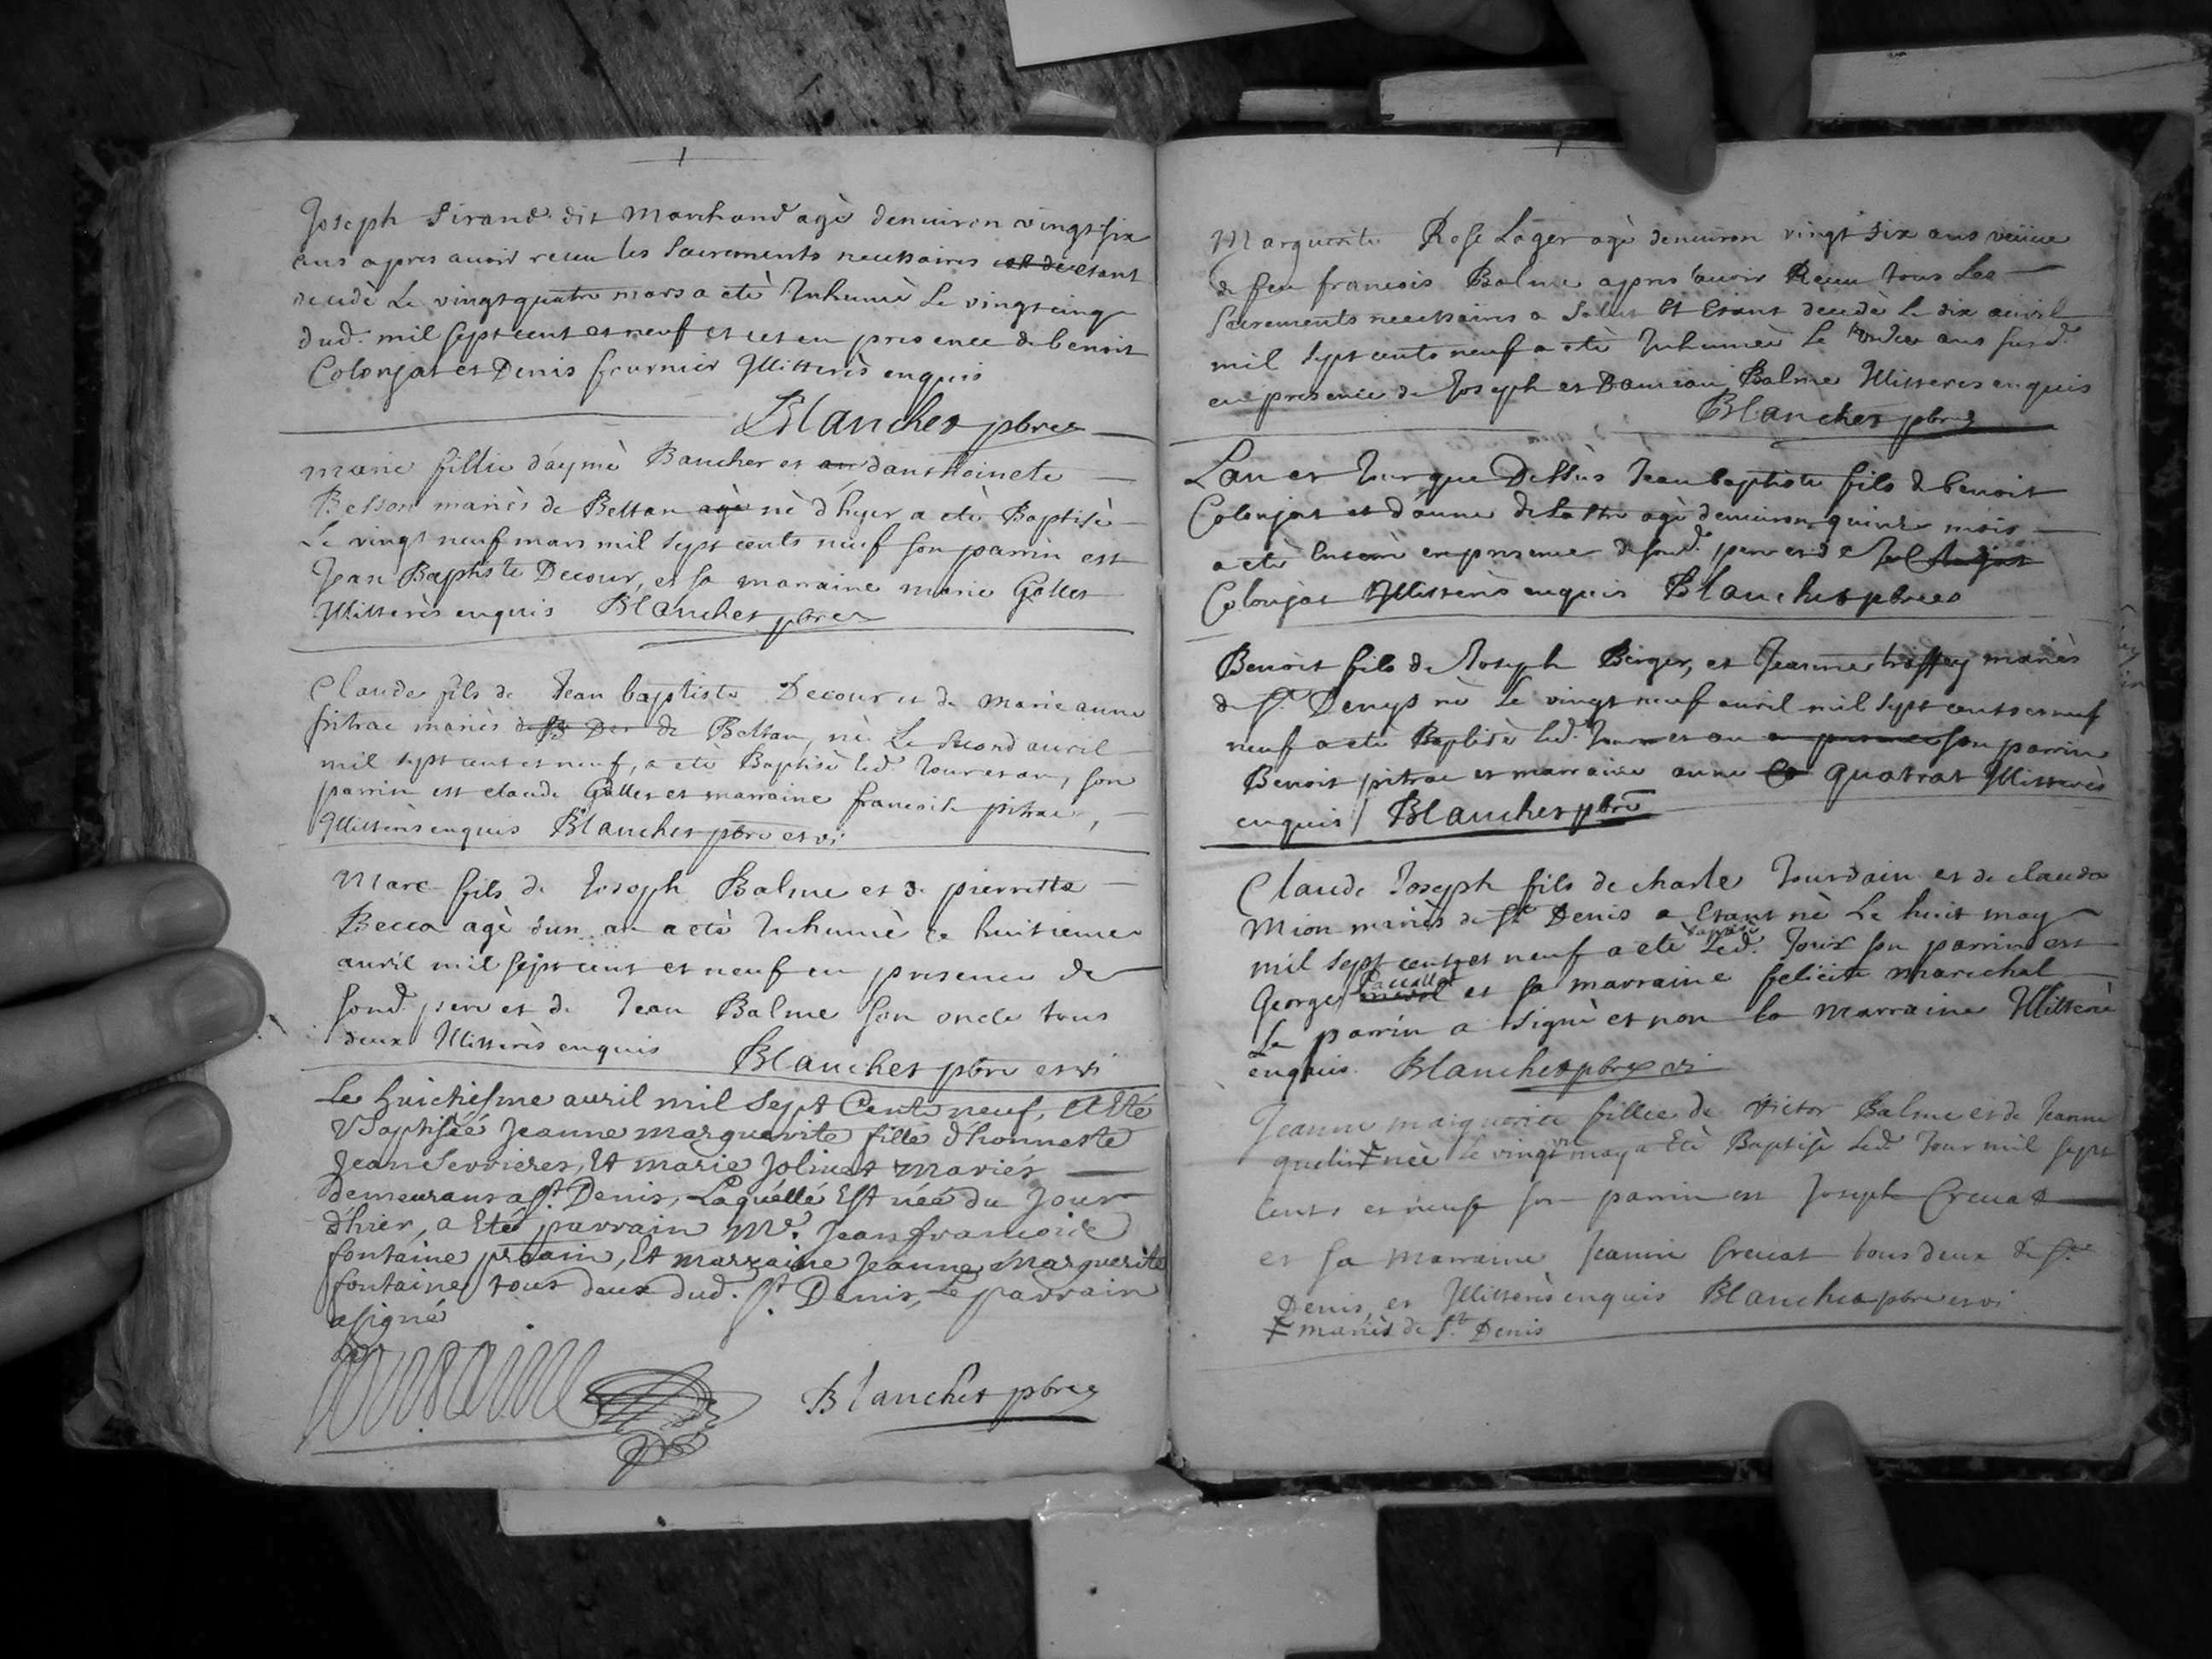 Joseph Sirand dit Marchand agè denuiron vingt six
ans apres auoir receu les Sacrements necessaires est de estant
decedè Le vingt quatre mars a etè Inhumè Le vingtcinq
dud. mil sept cent et neuf et cet en presence de benoit
Colonjat et Denis fournier Illitterès enquis
Blanchet pbre
marie fillie daymè Baucher et an danthoinete
Besson mariès de Bettan agè nè d'hyer a etè Baptisè
Le vingt neuf mars mil sept cents neuf son parrin est
Jean Baptiste Decour, et sa marraine marie Gallet
Illitterès enquis Blanchet pbre
Claude fils de Jean baptiste Decour et de marie anne
pitrae mariès de St Den de Bettan, nè Le second auril
mil sept cent et neuf, a etè Baptisè led. Jour et an, son
parrin est claude Gallet et marraine francoise pitrae,
Illitterès enquis Blanchet pbre et vi
Marc fils de Joseph Balme et de pierrette
Becca agè d'un an a etè Inhumè ce huitieme
auril mil sept cent et neuf en presence de
sond. pere et de Jean Balme son oncle tous
deux Illitterès enquis Blanchet pbre et vi
Le huichiesme auril mil Sept Cents neuf, a Eté
Baptiséé Jeanne marguerite fille d'honneste
Jean Servieres, Et marie Jolinet mariés
demeurans a St. Denis, Laquéllé Est née du Jour
d'hier, a Eté parrain Mr. Jean francois
fontaine prain, Et marraine Jeanne Marguerite
fontaine tous deux dud. St Denis, Le parrain
a signé
fontaine Blanchet pbre
Marguerite Rose Lager agè denuiron vingt six ans veüve
de feu francois Balme apres auoir Receu tous Les
Sacrements necessaires a Salut Et Etant decedè Le dix auril
mil sept cents neuf a etè Inhumèe Le onze ans susd.
en presence de Joseph et Damian Balme Illitteres enquis
Blanchet pbre
Lan et Jour que Dessùs Jean baptiste fils de benoit
Colonjat et d'anne de Lastre agè denuiron quinze mois
a etè Enterrè en presence de sond. pere et de
Colonjat Illitterès enquis Blanchet pbre
Benoit fils de Joseph Berger, et Jeanne truffey mariès
de St. Denys nè Le vingt neuf auril mil sept cents et neuf
neuf a etè Baptisè led. Jour et an en presence son parrin
Benoit pitrae et marraine anne Co Quatrat Illitterès
enquis / Blanchet pbre
Claude Joseph fils de charle Jourdain et de clauda
Mion mariès de St Denis a Etant nè Le huit may
mil sept cents et neuf a ete baptisè Led. Jour son parrin est
George et sa marraine felicite marechal
Le parrin a signè et non la marraine Illiterè
enquis. Blanchet pbre et vi
Jeanne marguerite fillie de Victor Balme et de Jeanne
ǂ nèe Le vingt may a Etè Baptisè Led. Jour mil sept
Cents et neuf son parrin est Joseph Creuat
et sa marraine Jeanne Creuat tous deux de St.
Denis et Illitterès enquis Blanchet pbre et vi
ǂ mariès de St. Denis